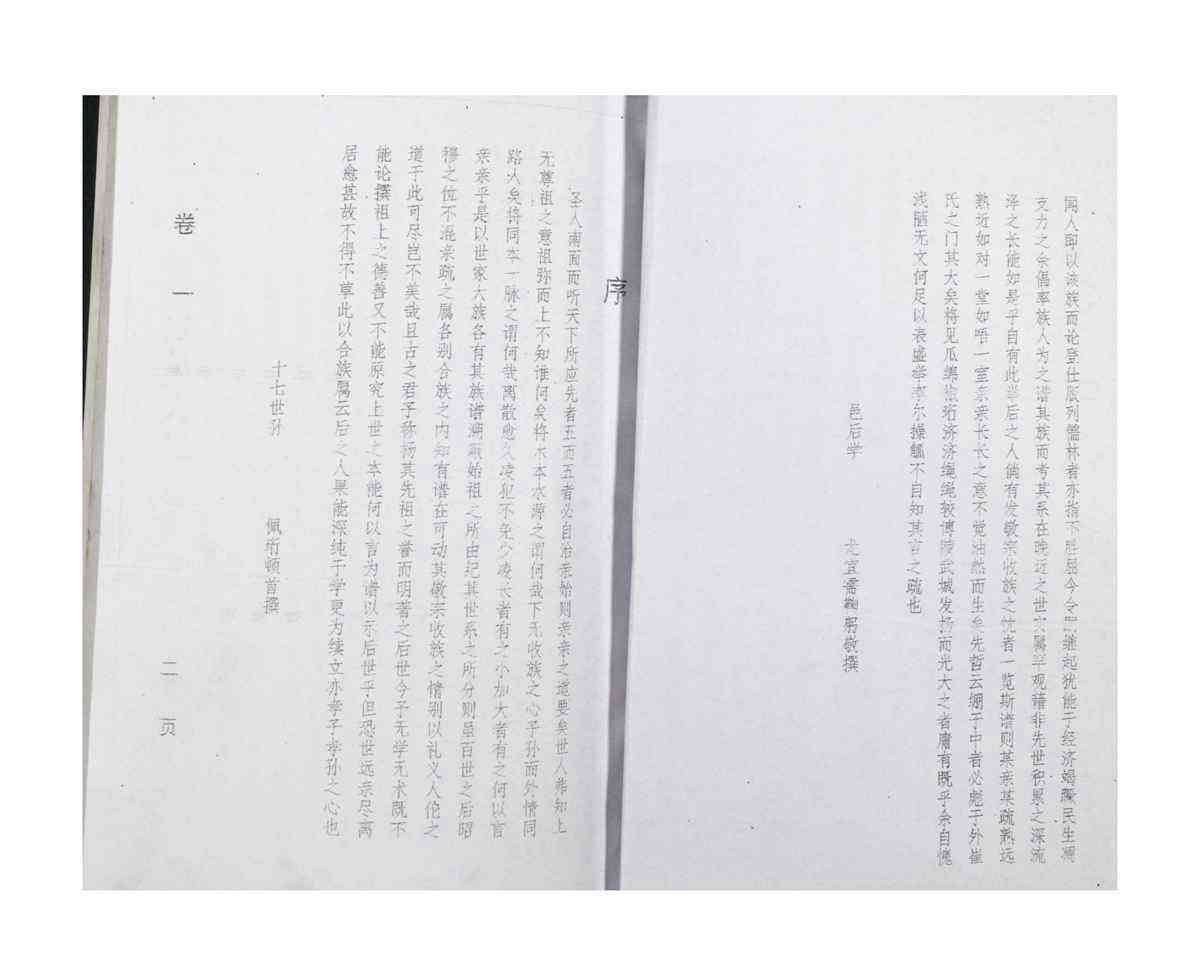 国人即以该族而论登仕版列儒林者亦指不胜屈今令则继起犹能于经济竭蹶民生凋
支力之余倡率族人为之谱其族而考其系在晚近之世实属罕观藉非先世积累之深流
泽之长能如是乎自有此举后之人倘有发敬宗收族之忱者一览斯谱则某亲某疏熟远
熟近如对一堂如晤一室亲亲长长之意不觉油然而生矣先哲云绷于中者必彪于外崔
氏之门其大矣将见瓜绵椒衍济济绳绳较博陵武城发扬而光大之者庸有既乎余自愧
浅陋无文何足以表盛举率尔操觚不自知其言之疏也
邑后学 龙宜需鞠躬敬撰
序
圣人南面而听天下所应先者五而五者必自治亲始则亲亲之道要矣世人非知上
无尊祖之意祖弥而上不知谁何矣将木本水源之谓何哉下无收族之心子孙而外情同
路人矣将同本一脉之谓何哉离散愈久凌犯不免少凌长者有之小加大者有之何以言
亲亲乎是以世家大族各有其族谱溯厥始祖之所由纪其世系之所分则虽百世之后昭
穆之位不混亲疏之属各别合族之内知有谱在可动其敬宗收族之情别以礼义人伦之
道于此可尽岂不美哉且古之君子称扬其先祖之誉而明著之后世今予无学无术既不
能论撰祖上之德善又不能原究上世之本能何以言为谱以示后世乎但恐世远亲尽离
居愈甚故不得不草此以合族属云后之人果能深纯于学更为续立亦孝子孝孙之心也
十七世孙 佩珩顿首撰
卷一 二页